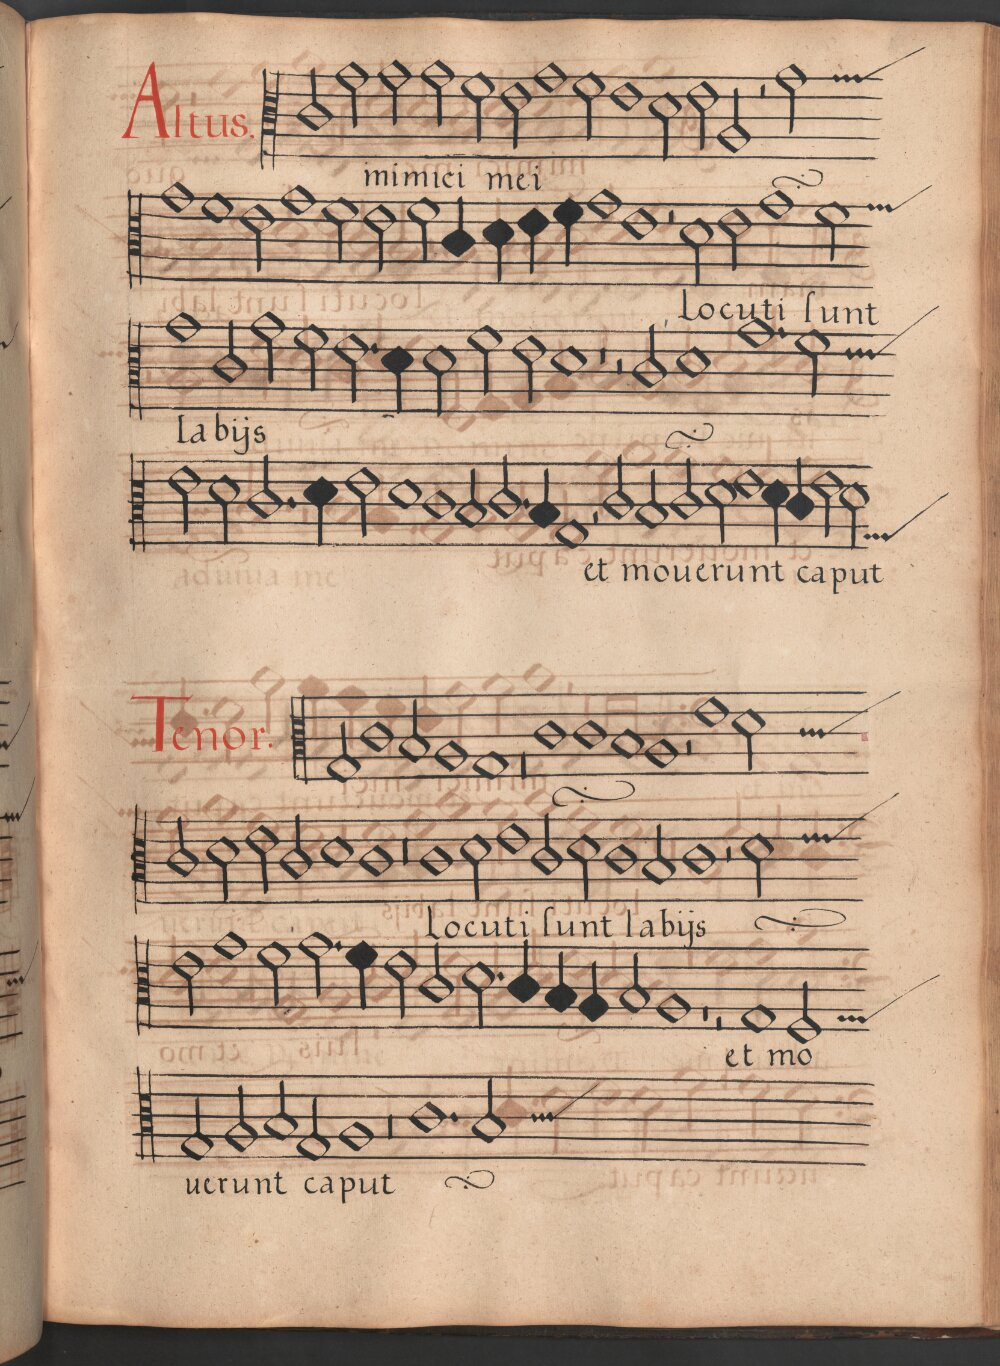 Altus.
inimici mei
Locuti sunt
labijs
et mouerunt caput
Tenor.
Locuti sunt labijs
et mo
uerunt caput